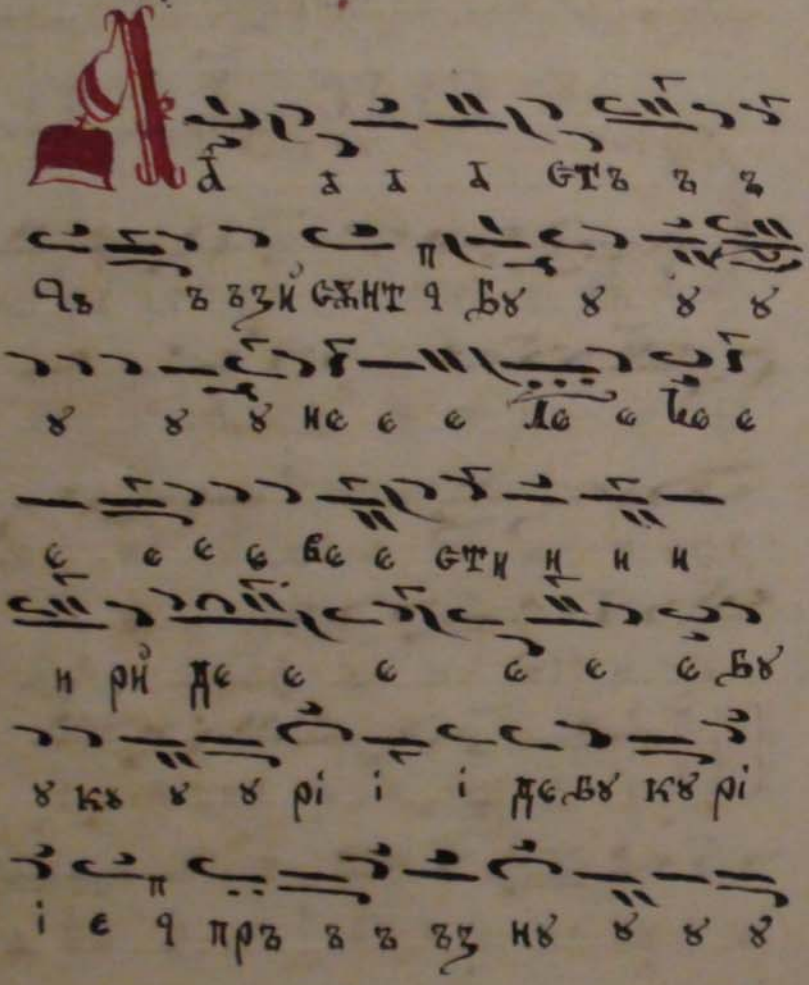 А а а а а стъ ъ ъ
Чъ ъ ъзи сѫнт ч бꙋ ꙋ ꙋ ꙋ
ꙋ ꙋ ꙋ не е е ле е е
е е е е ве е сти и и и
и рй де е е е е е бꙋ
ꙋ кꙋ ꙋ ꙋ рі і і де бꙋ кꙋ рі
і е ч пръ ъ ъ ъз нꙋ ꙋ ꙋ ꙋ